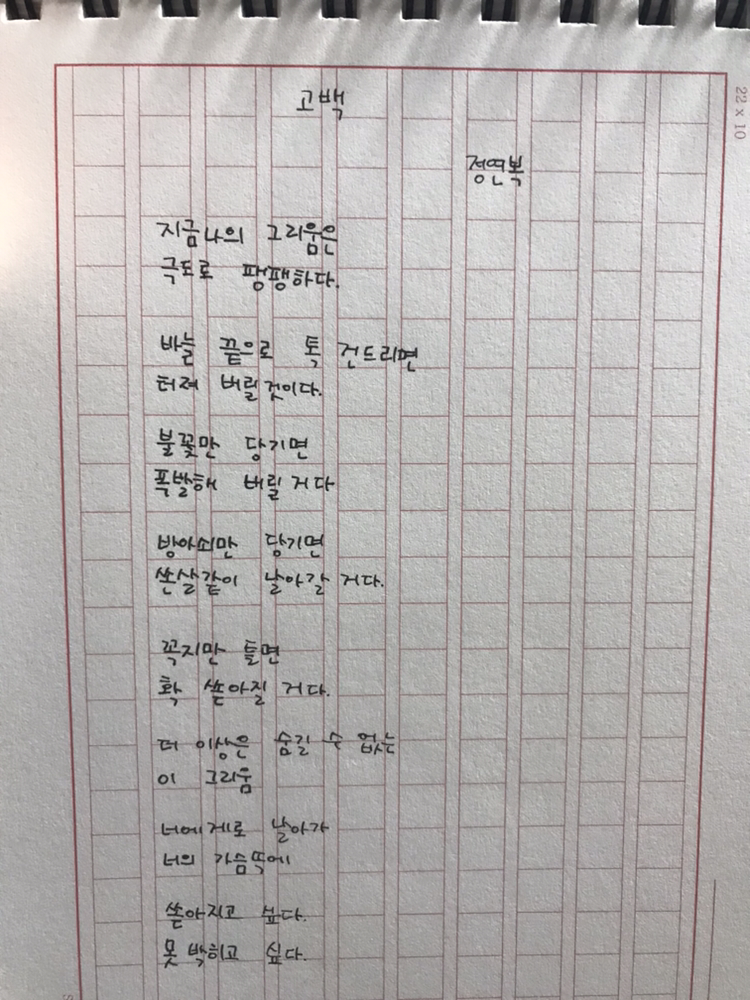 22 x 10
고백
정연복
지금 나의 그리움은
극도로 팽팽하다.
바늘 끝으로 톡 건드리면
터져 버릴 것이다.
불꽃만 당기면
폭발해 버릴 거다
방아쇠만 당기면
쏜살같이 날아갈 거다.
꼭지만 틀면
확 쏟아질 거다.
더 이상은 숨길 수 없는
이 그리움
너에게로 날아가
너의 가슴팍에
쏟아지고 싶다.
못 박히고 싶다.